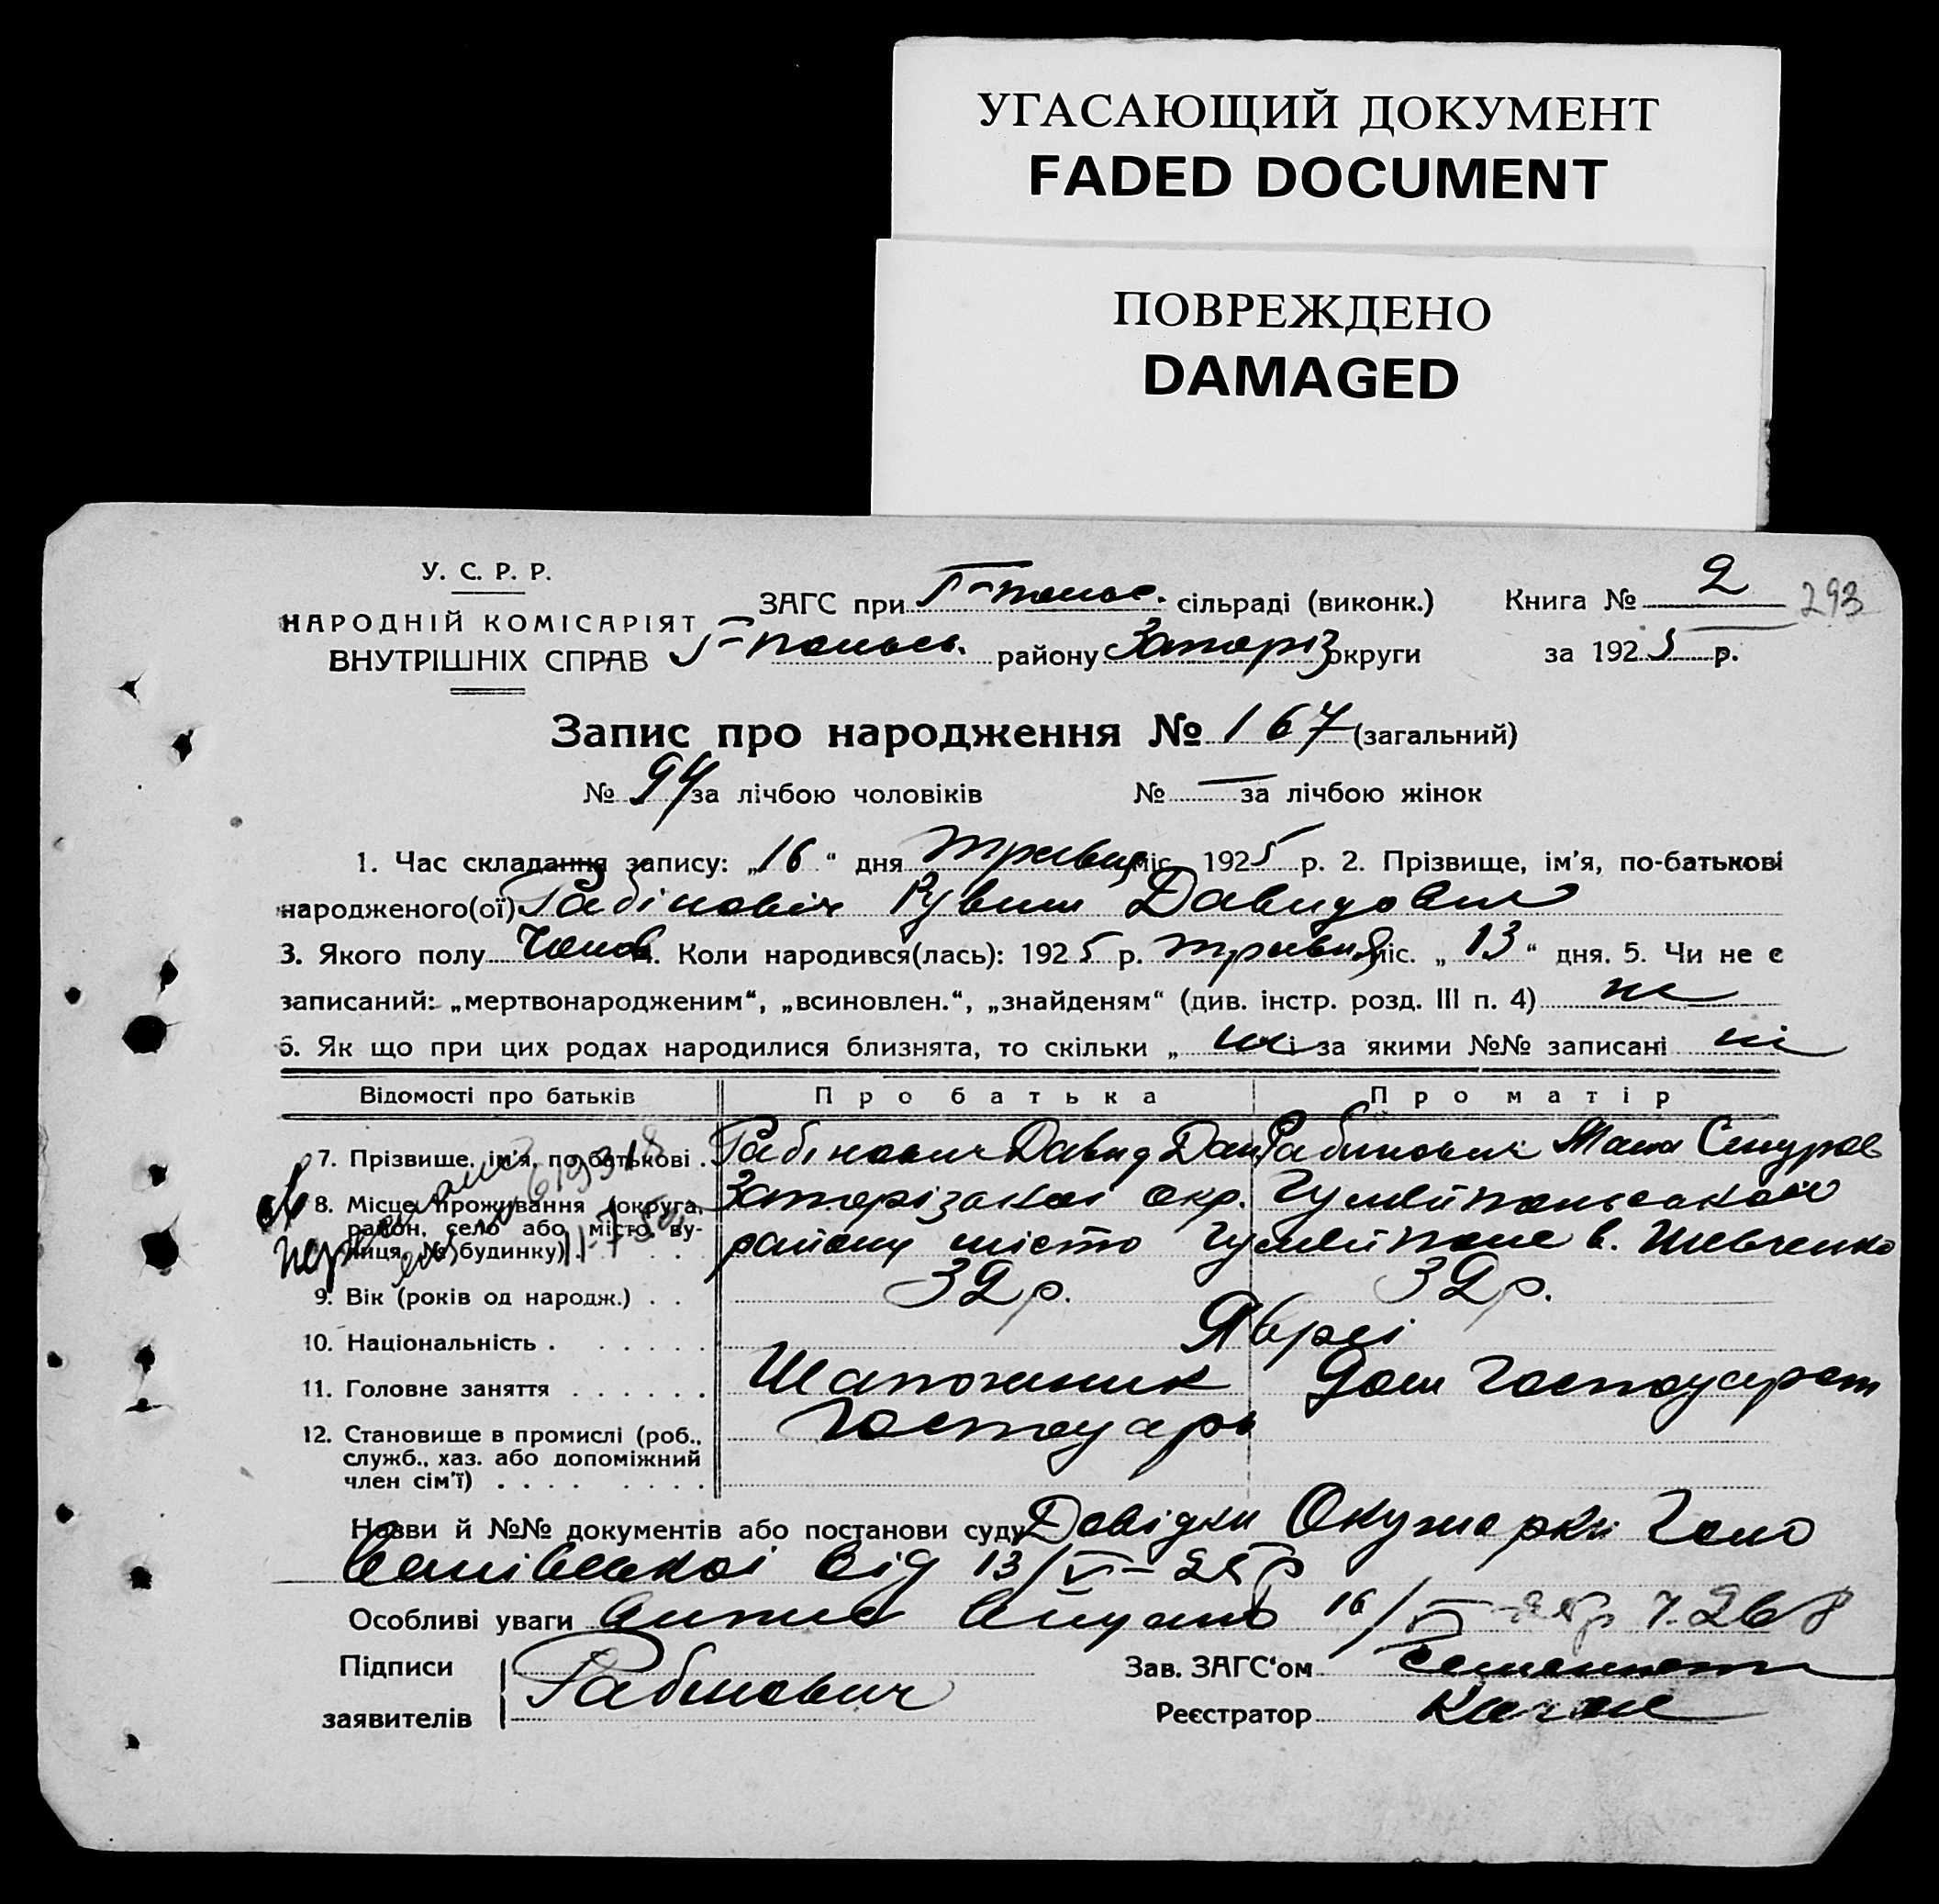 УГАСАЮЩИЙ ДОКУМЕНТ
FADED DOCUMENT
ПОВРЕЖДЕНО
DAMAGED
У. С. Р. Р.
НАРОДНІЙ КОМІСАРІЯТ
ВНУТРІШНІХ СПРАВ
ЗАГС при Г-польс. сільраді (виконк.)
Книга № 2 293
Г-польсь. району Запоріз округи
за 1925 р.
Запис про народження № 167 (загальний)
№ 94 за лічбою чоловіків № — за лічбою жінок
1. Час складання запису: „16“ дня травня міс. 1925 р. 2. Прізвище, ім'я, по-батькові
народженого(ої) Рабінович Рувим Давидович
3. Якого полу Чолов. Коли народився(лась): 1925 р. травня міс. „13“ дня. 5. Чи не є
записаний: „мертвонародженим“, „всиновлен.“, „знайденям“ (див. інстр. розд. III п. 4) ні
6. Як що при цих родах народилися близнята, то скільки „ ні і за якими №№ записані ні
Відомості про батьків Про батька Про матір
7. Прізвище, ім'я, по батькові . Рабінович Давид Рабинович
8. Місце проживання (округа, район, село або місто, вулиця, № будинку) Запорізької окр. Гуляйпольської
району місто Гуляйполе в. Шевченко
9. Вік (років од народж.) . . 32 р. 32 р.
10. Національність . Явреї
11. Головне заняття Шапочник Дом Господарст
12. Становище в промислі (роб., Господарь
служб., хаз. або допоміжний
член сім'ї)
Назви й №№ документів або постанови суду Довідки
від 13/V-25р
Особливі уваги 16/V-25р ч. 268
Підписи
заявителів Рабинович
Зав. ЗАГС'ом
Реєстратор Каган